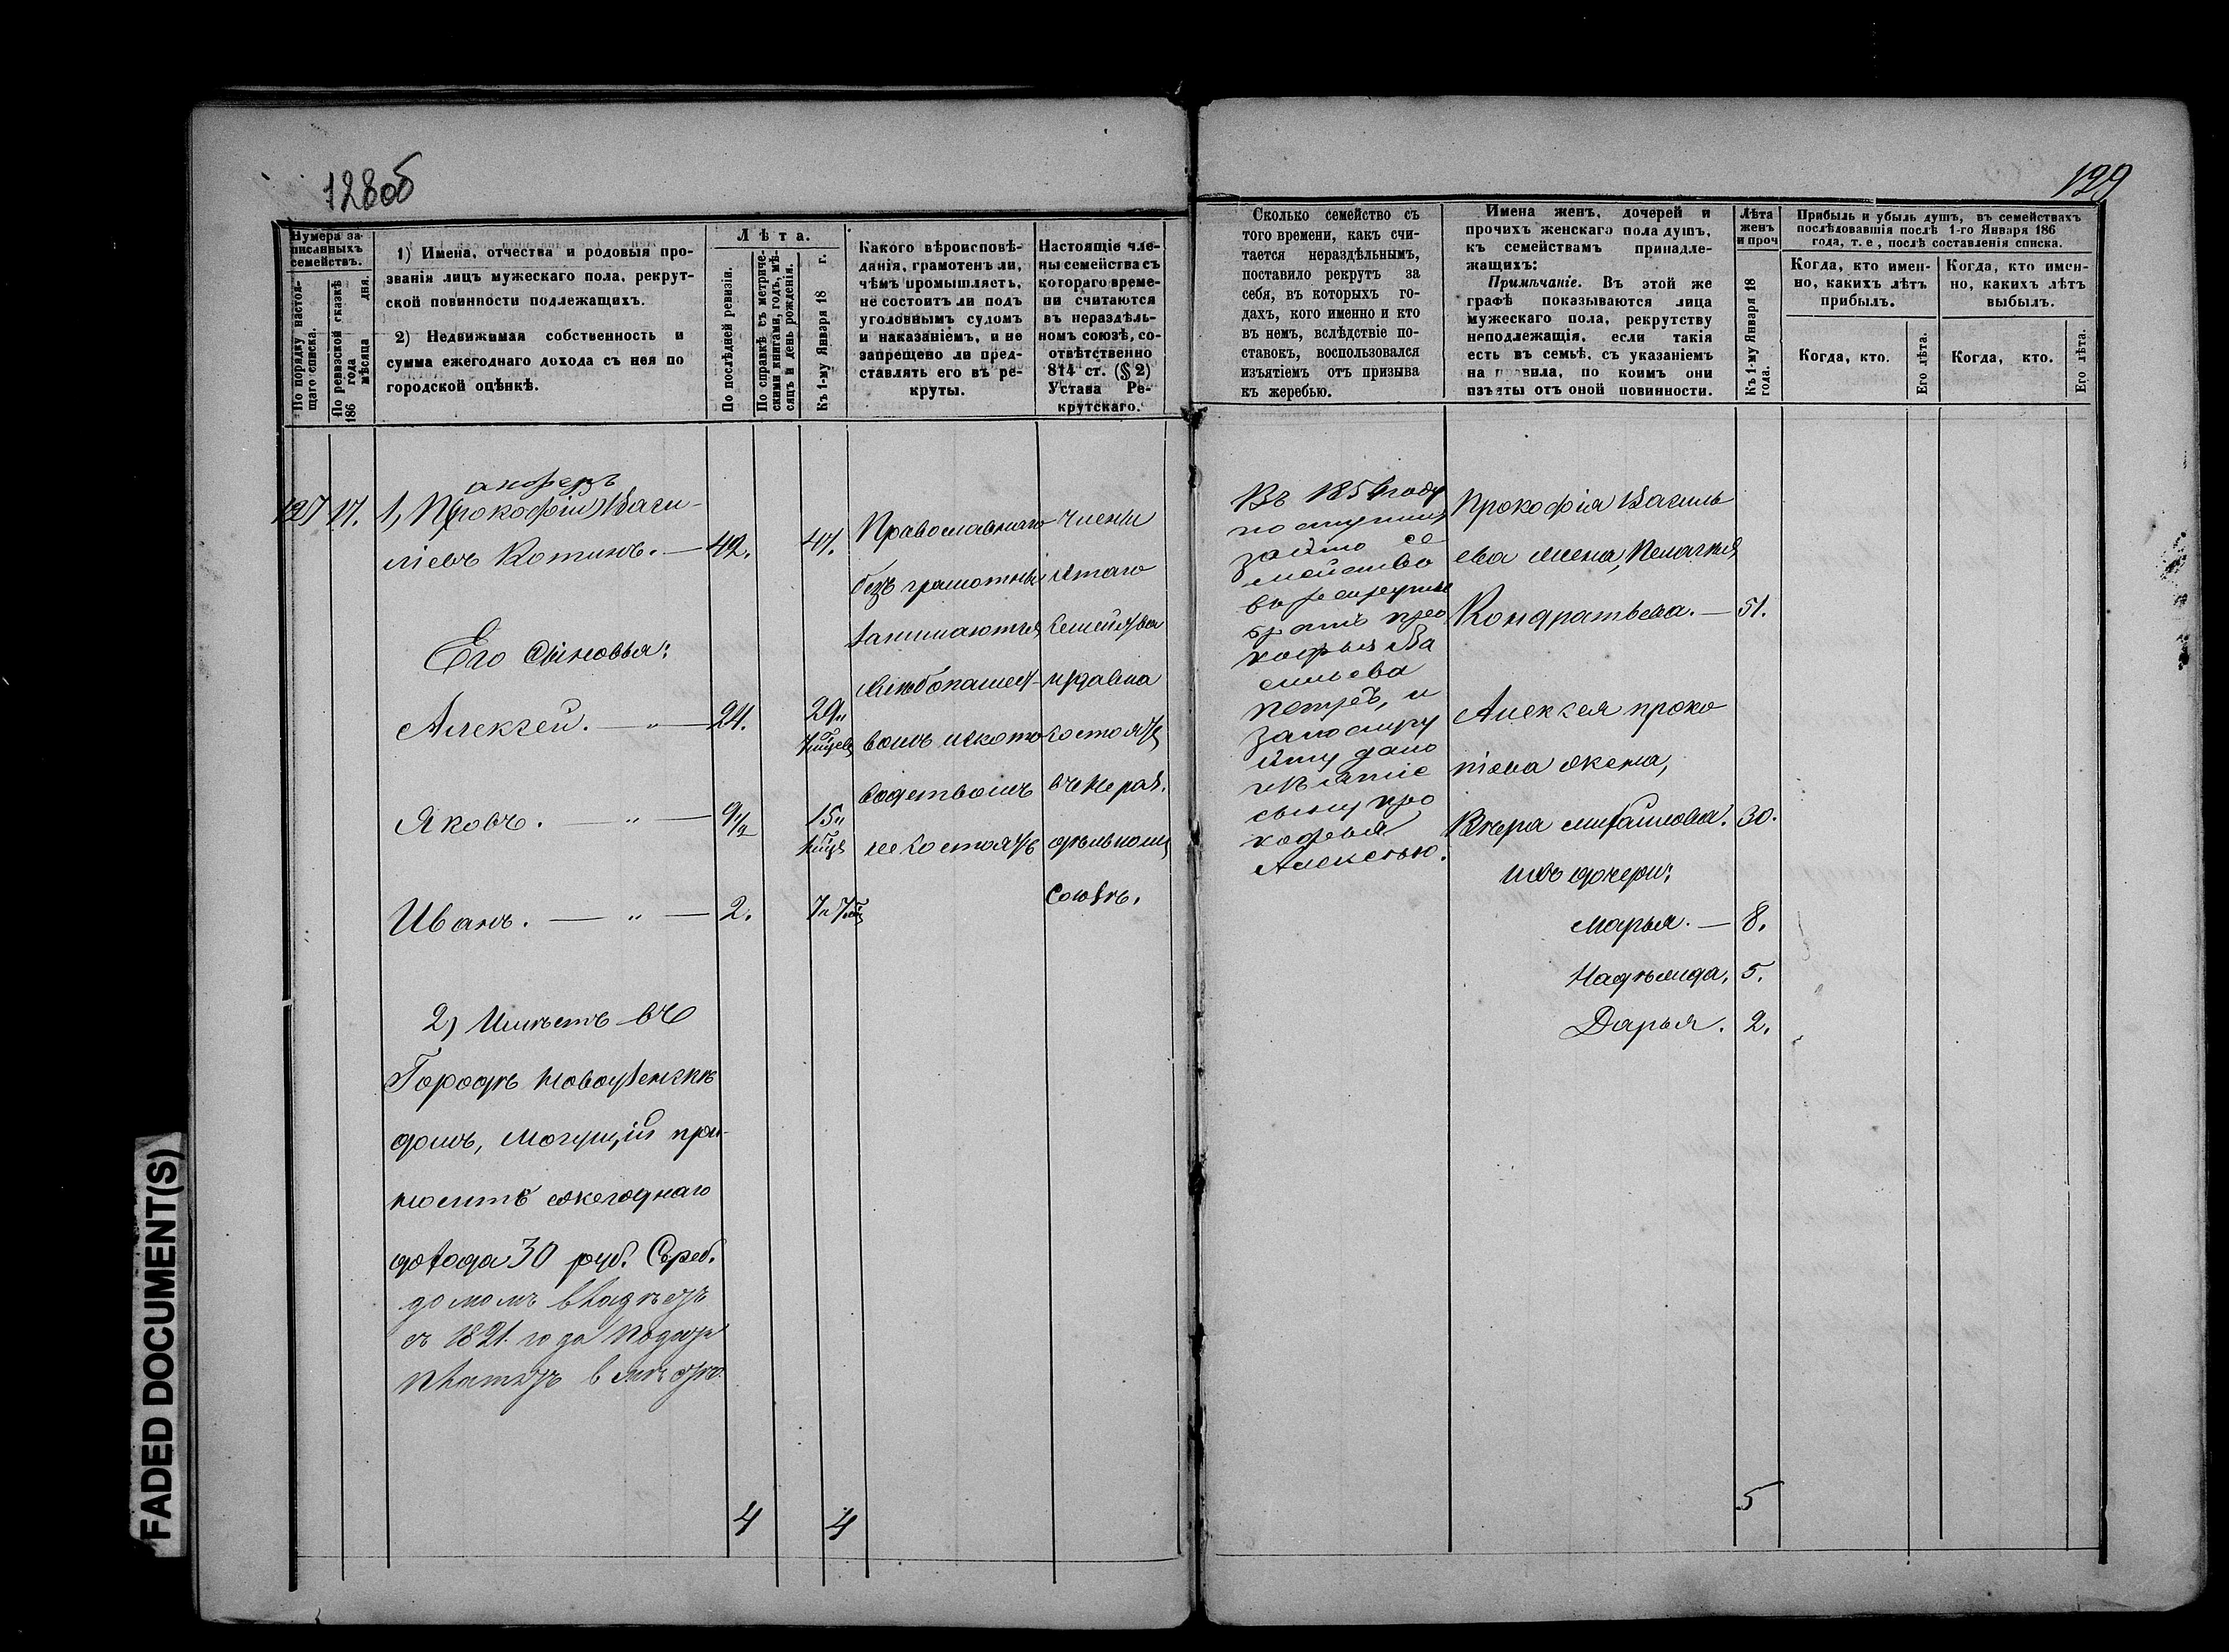 128об
129
Нумера записанныхъ семействъ.
По порядку настоящаго списка.
По ревизской сказкѣ 186 года мѣсяца дня.
1) Имена, отчества и родовыя про-
званія лицъ мужескаго пола, рекрут-
ской повинности подлежащихъ.
2) Недвижимая собственность и
сумма ежегоднаго дохода съ нея по
городской оцѣнкѣ.
Лѣта.
По послѣдней ревизіи.
По справкѣ съ метриче-
скими книгами, годъ, мѣ-
сяцъ и день рожденія.
Къ 1-му Января 18 г.
Какого вѣроисповѣ-
данія, грамотенъ ли,
чѣмъ промышляетъ,
не состоитъ ли подъ
уголовнымъ судомъ
и наказаніемъ, и не
запрещено ли пред-
ставлять его въ ре-
круты.
Настоящіе чле-
ны семейства съ
котораго време-
ни считаются
въ нераздѣль-
номъ союзѣ, со-
отвѣтственно
814 ст. (§ 2)
Устава Ре-
крутскаго.
127
17.
1, Прокофій Васи-
ліевъ Котинъ. — 42. 47.
Его Сыновья:
Алексей. — " — 24. 29"
Яковъ. — " — 9 1/2 15"
Иванъ. — " — 2. 7"
2) Имѣетъ въ
Городѣ Новоузенскѣ
домъ, могущій при-
носить ежегоднаго
дохода 30 руб. Сереб.
домомъ владѣетъ
съ 1821. года подати
платитъ
4 4
Православнаго
безъ грамотны
занимаются
хлебопашест-
вомъ и ското-
водствомъ
не состоятъ
Члены
этаго
Семейства
издавна
состоятъ
въ нераз.
дельномъ
Союзѣ.
Сколько семейство съ
того времени, какъ счи-
тается нераздѣльнымъ,
поставило рекрутъ за
себя, въ которыхъ го-
дахъ, кого именно и кто
въ немъ, вслѣдствіе по-
ставокъ, воспользовался
изъятіемъ отъ призыва
къ жеребью.
Имена женъ, дочерей и
прочихъ женскаго пола душъ,
къ семействамъ принадле-
жащихъ:
Примѣчаніе. Въ этой же
графѣ показываются лица
мужескаго пола, рекрутству
неподлежащія, если такія
есть въ семьѣ, съ указаніемъ
на правила, по коимъ они
изъяты отъ оной повинности.
Лѣта
женъ
и проч
Къ 1-му Января 18 года.
Прибыль и убыль душъ, въ семействахъ
послѣдовавшія послѣ 1-го Января 186
года, т. е., послѣ составленія списка.
Когда, кто имен-
но, какихъ лѣтъ
прибылъ.
Когда, кто имен-
но, какихъ лѣтъ
выбылъ.
Когда, кто.
Его лѣта.
Когда, кто.
Его лѣта.
Въ 1854 году
поступилъ
за это се
мейство
въ рекруты
братъ про
кофья Ва
сильева
Петръ, и
дано
изъятіе
сыну про
кофья
Алексѣю.
Прокофія Василь
ева жена, Пелагия
Кондратьева. — 51.
Алексея проко
піева жена,
Вѣра михайлова. 30.
ихъ дочери:
Марья. — 8.
Надѣжида. 5.
Дарья. 2.
5
FADED DOCUMENT(S)